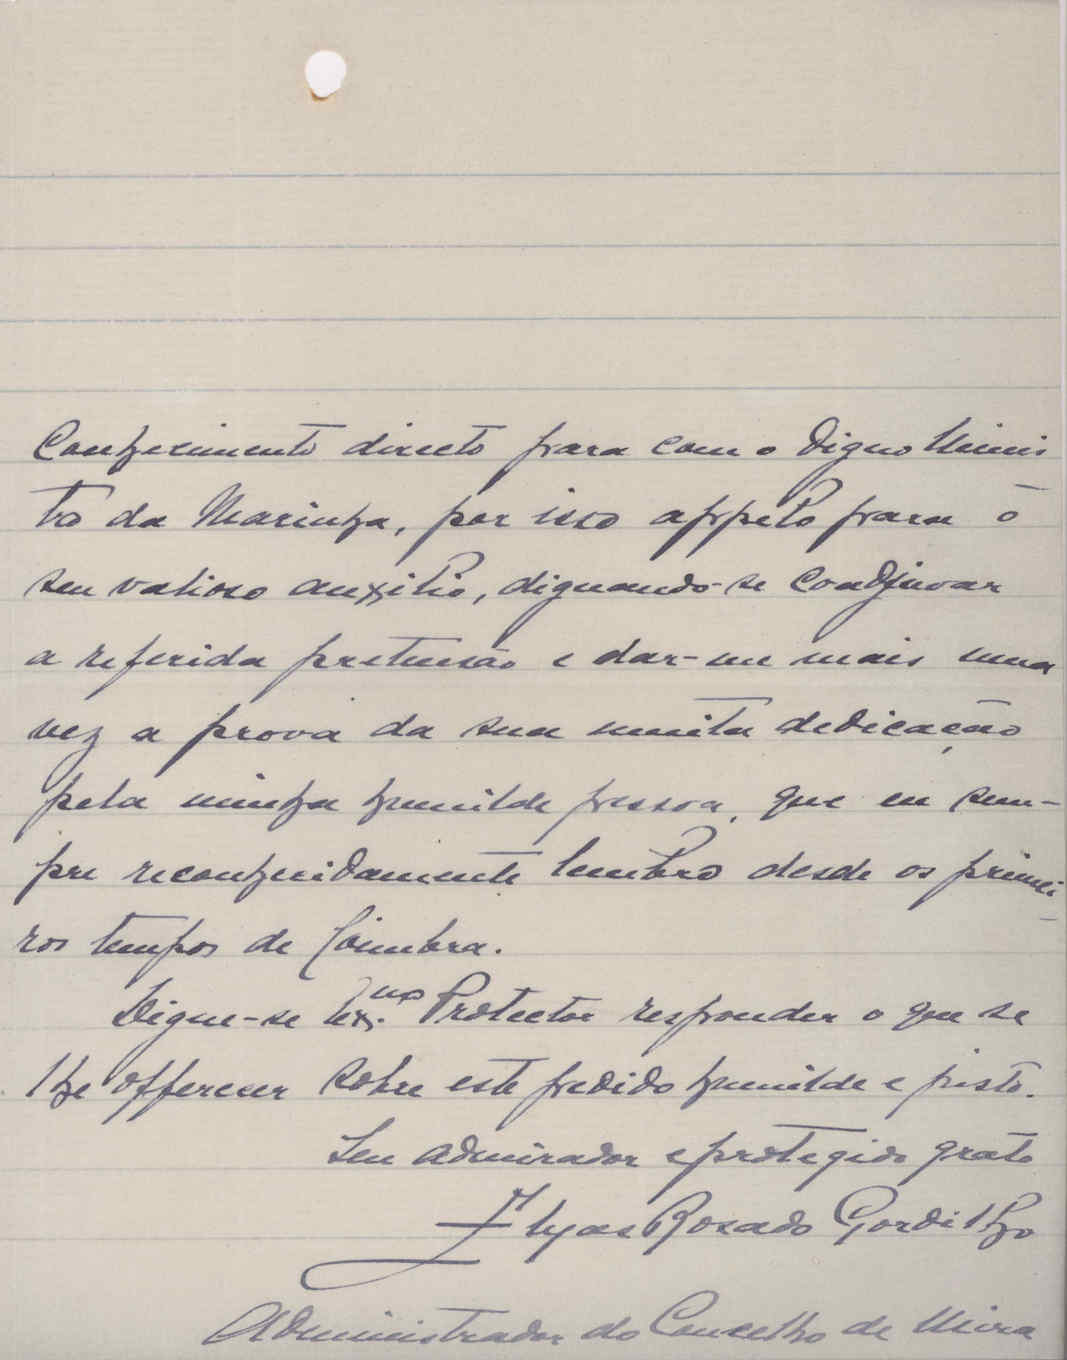 Conhecimento directo para com o Digno Minis
tro da Marinha, por isso appélo para o
seu valioso auxilio, dignando-se coadjuvar
a referida pretensão e dar-me mais uma
vez a prova da sua muita dedicação
pela minha humilde pessoa, que eu sem-
pre reconhecidamente lembro desde os primei-
ros tempos de Coimbra.
Digne-se Ex.mo Protector responder o que se
lhe offerecer sobre este pedido humilde e justo.
Seu admirador e protegido grato
Elyas Rosado Gordilho
Administrador do Concelho de Mira